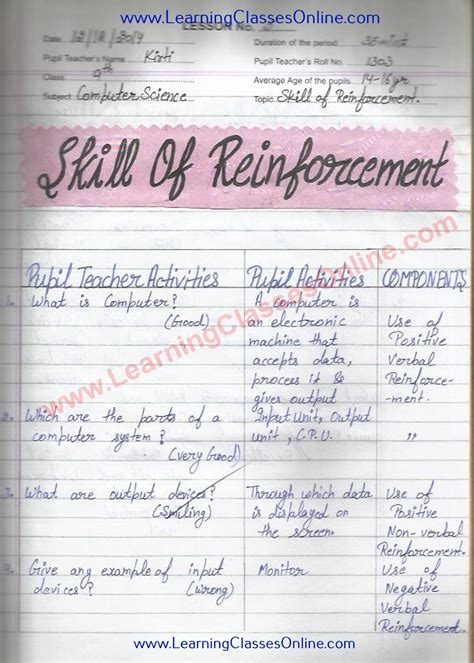 www.LearningClassesOnline.com
LESSON No. 3
Date 12/12/2014 Duration of the period 35 mint
Pupil Teacher's Name Kirti Pupil Teacher's Roll No. 1303
Class 9th Average Age of the pupils 14-16yr
Subject Computer Science Topic Skill of Reinforcement.
Skill Of Reinforcement
Pupil Teacher Activities Pupil Activities COMPONENTS
1. What is Computer? A computer is Use of
(Good) an electronic Positive
machine that Verbal
accepts data, Reinforce-
process it & -ment.
gives output
2. Which are the parts of a Input Unit, Output ,,
computer system? unit, C.P.U.
(Very Good)
3. What are output devices? Through which data Use of
(Smiling) is displayed on Positive
the screen. Non-verbal
Reinforcement.
4. Give any example of input Monitor Use of
devices? (Wrong) Negative
Verbal
Reinforcement.
www.LearningClassesOnline.com
www.LearningClassesOnline.com